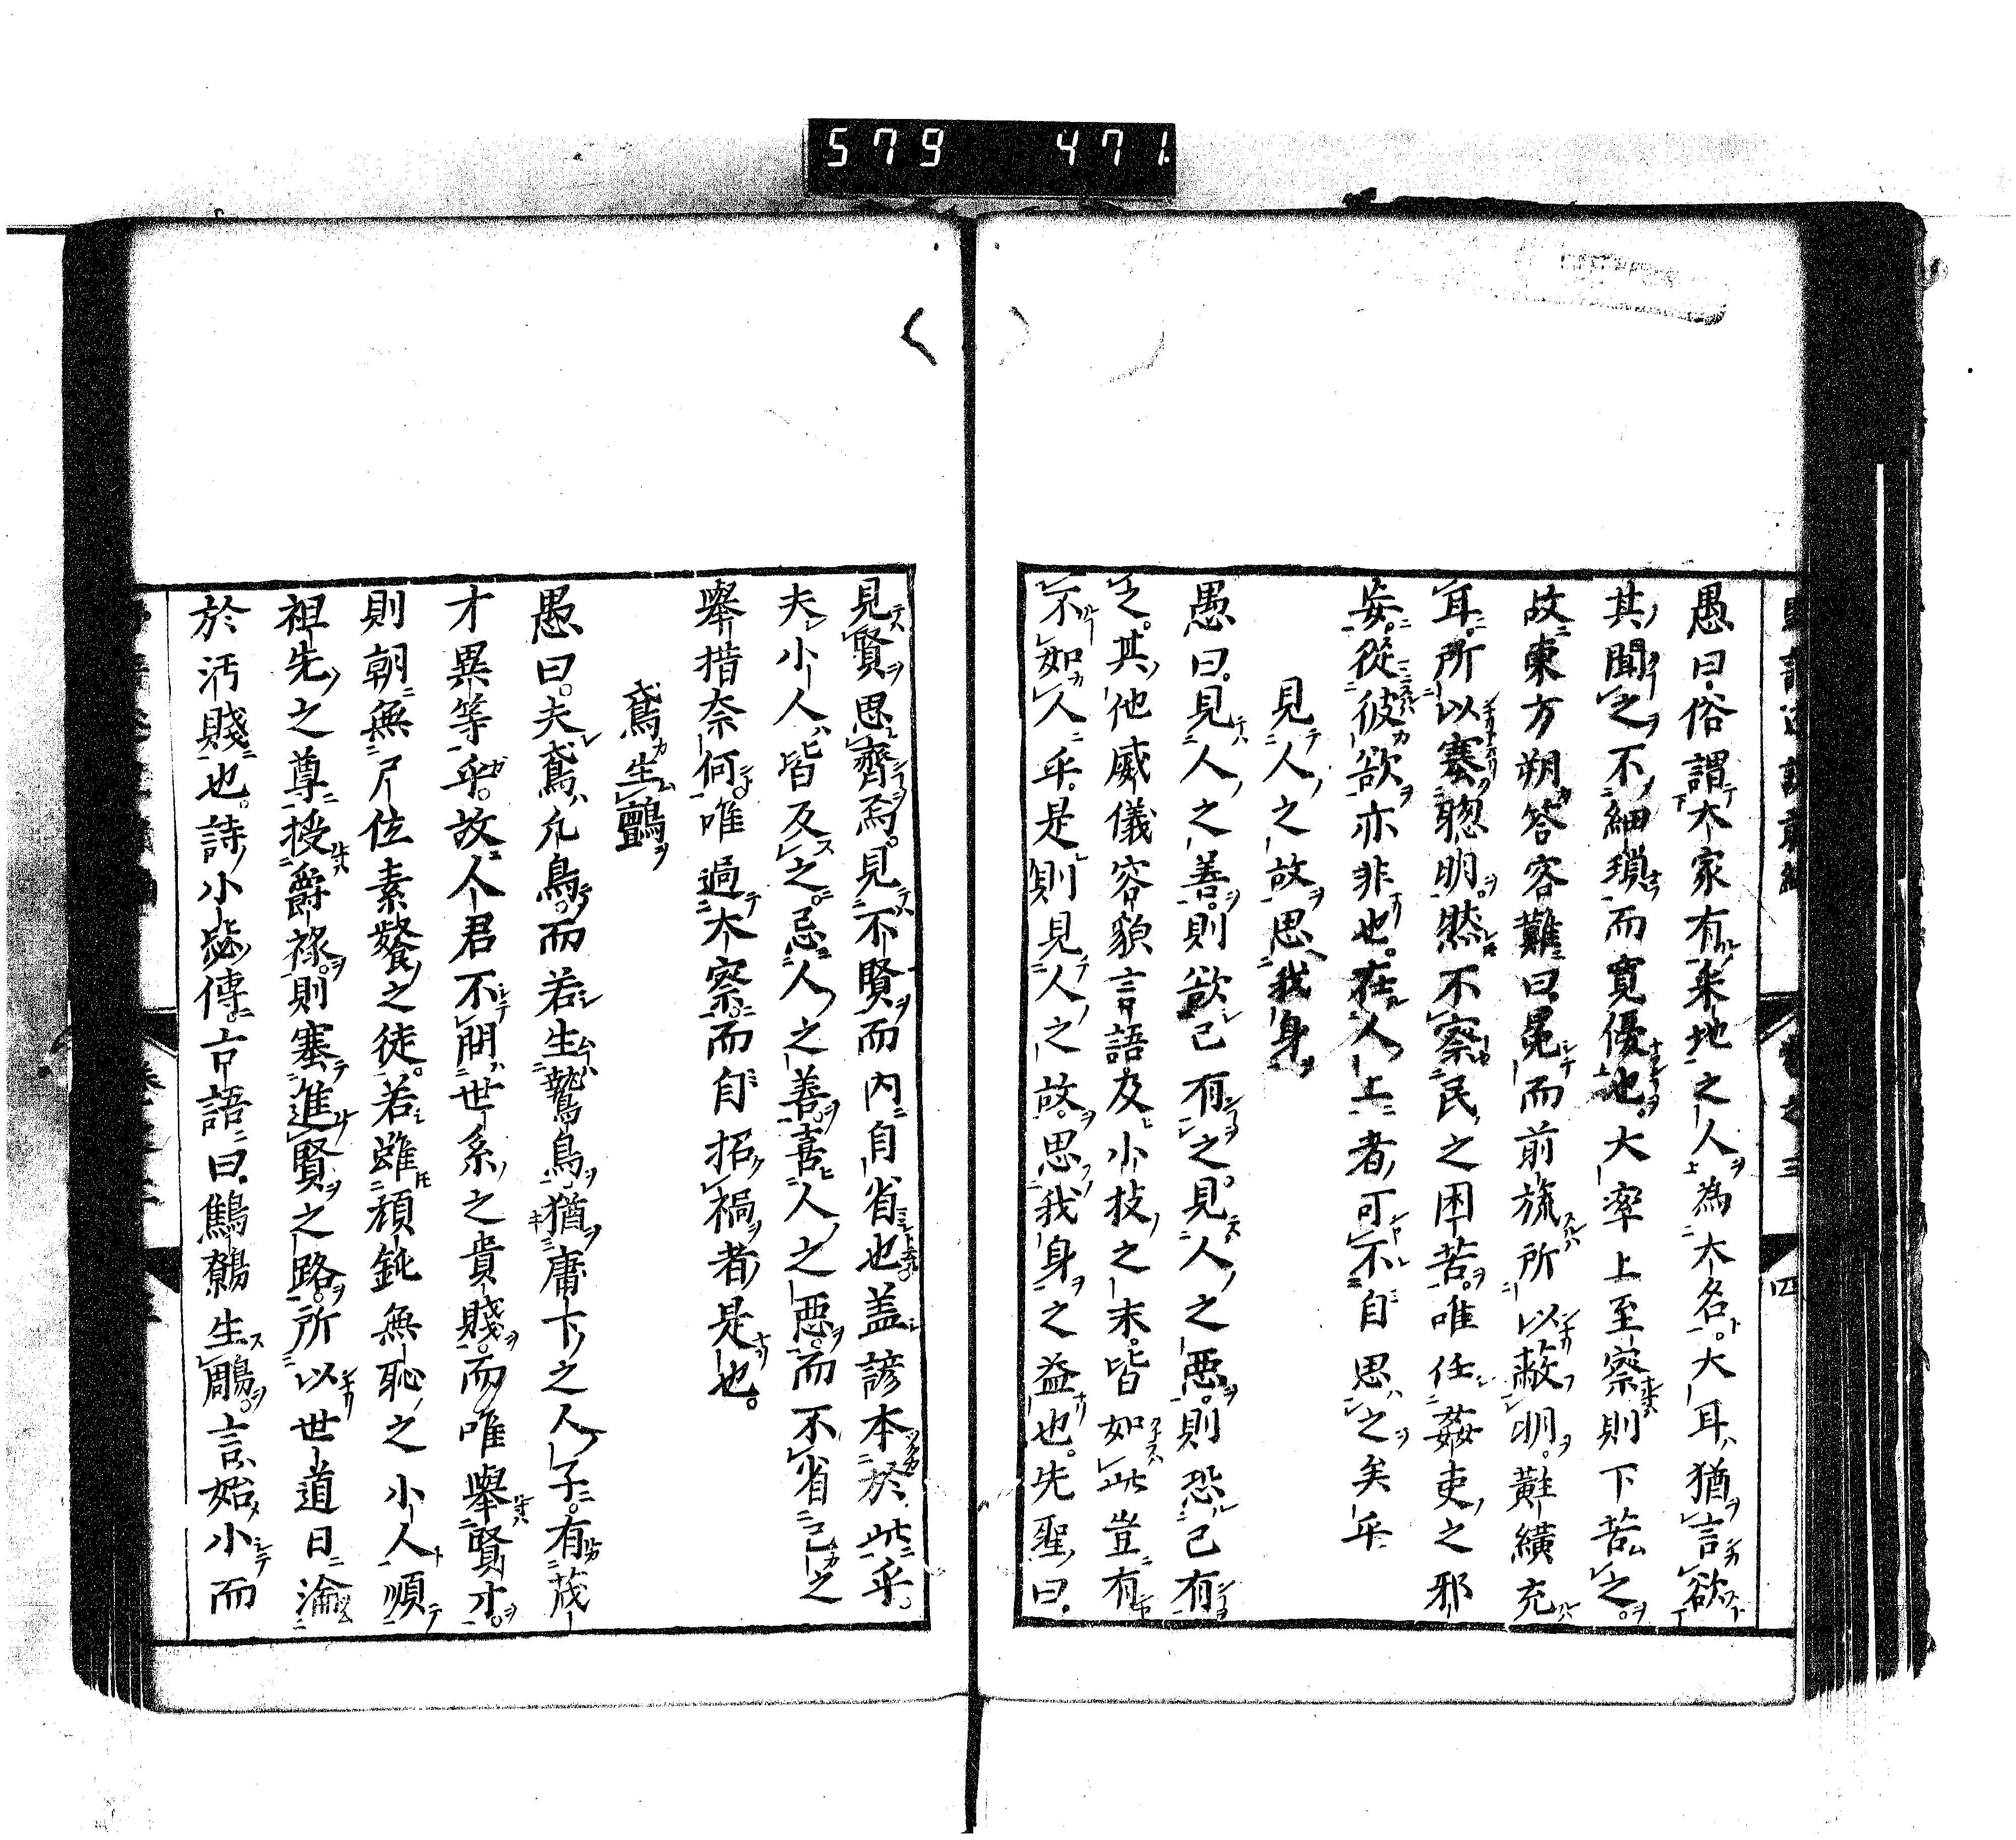 579 471
愚曰俗謂大家有采地之人為大名。大耳猶言欲
其聞之不細瑣而寛優也。大率上至察則下苦之。
故東方朔答客難曰。冕而前旒所以蔽明。黈纊充
耳。所以塞聰明。然不察民之困苦。唯任姦吏之邪
妄。從彼欲亦非也。在人上者可不自思之矣乎
見人之故思我身
愚曰。見人之善。則欲己有之。見人之惡。則恐己有
之。其他威儀容貌言語及小技之末。皆如此豈有
不如人乎。是則見人之故。思我身之益也。先聖曰。
見賢思齊焉。見不賢而内自省也。盖諺本於此乎。
夫小人皆反之。忌人之善。喜人之惡。而不省己之
舉措奈何。唯過大察。而自招禍者是也。
鳶生鸇
愚曰。夫鳶凡鳥。而若生鷙鳥猶庸卞之人子。有茂
才異等乎。故人君不問世系之貴賤。而唯舉賢才。
則朝無尸位素餐之徒。若雖頑鈍無恥之小人順
祖先之尊授爵祿。則塞進賢之路。所以世道日淪
於汚賤也。詩小毖傳言語曰。鷦鷯生鵰。言始小而